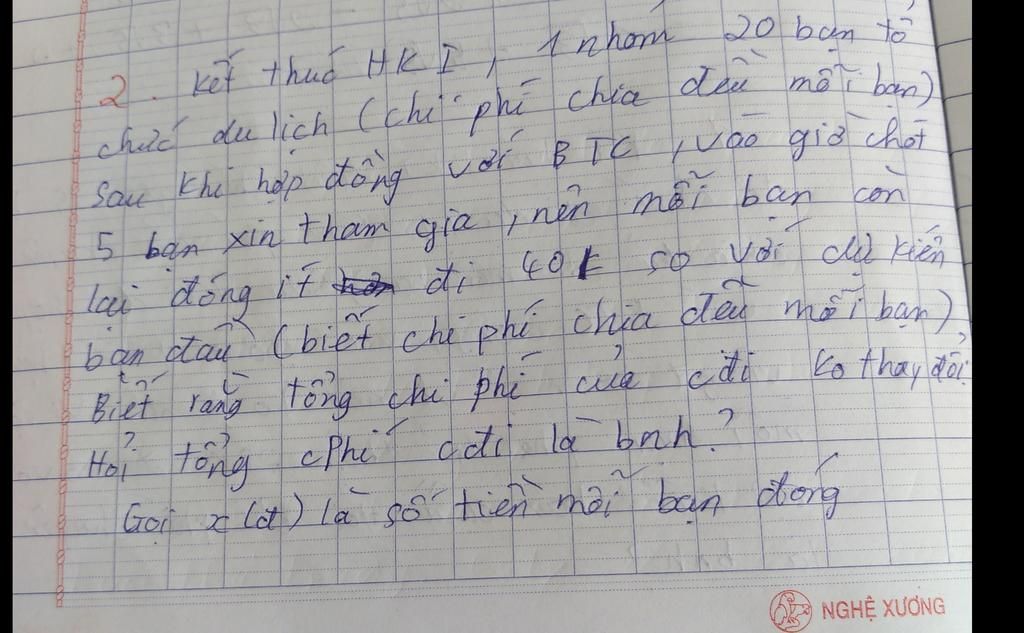 2. Kết thúc HKI, 1 nhóm 20 bạn tổ
chức du lịch (chi phí chia đều mỗi bạn)
sau khi hợp đồng với BTC, vào giờ chót
5 bạn xin tham gia, nên mỗi bạn còn
lại đóng ít đi 40k so với dự kiến
ban đầu (biết chi phí chia đều mỗi bạn)
Biết rằng tổng chi phí của cđi ko thay đổi.
Hỏi tổng cphí cđi là bnh?
Gọi x (đ) là số tiền mỗi bạn đóng
NGHỆ XƯƠNG